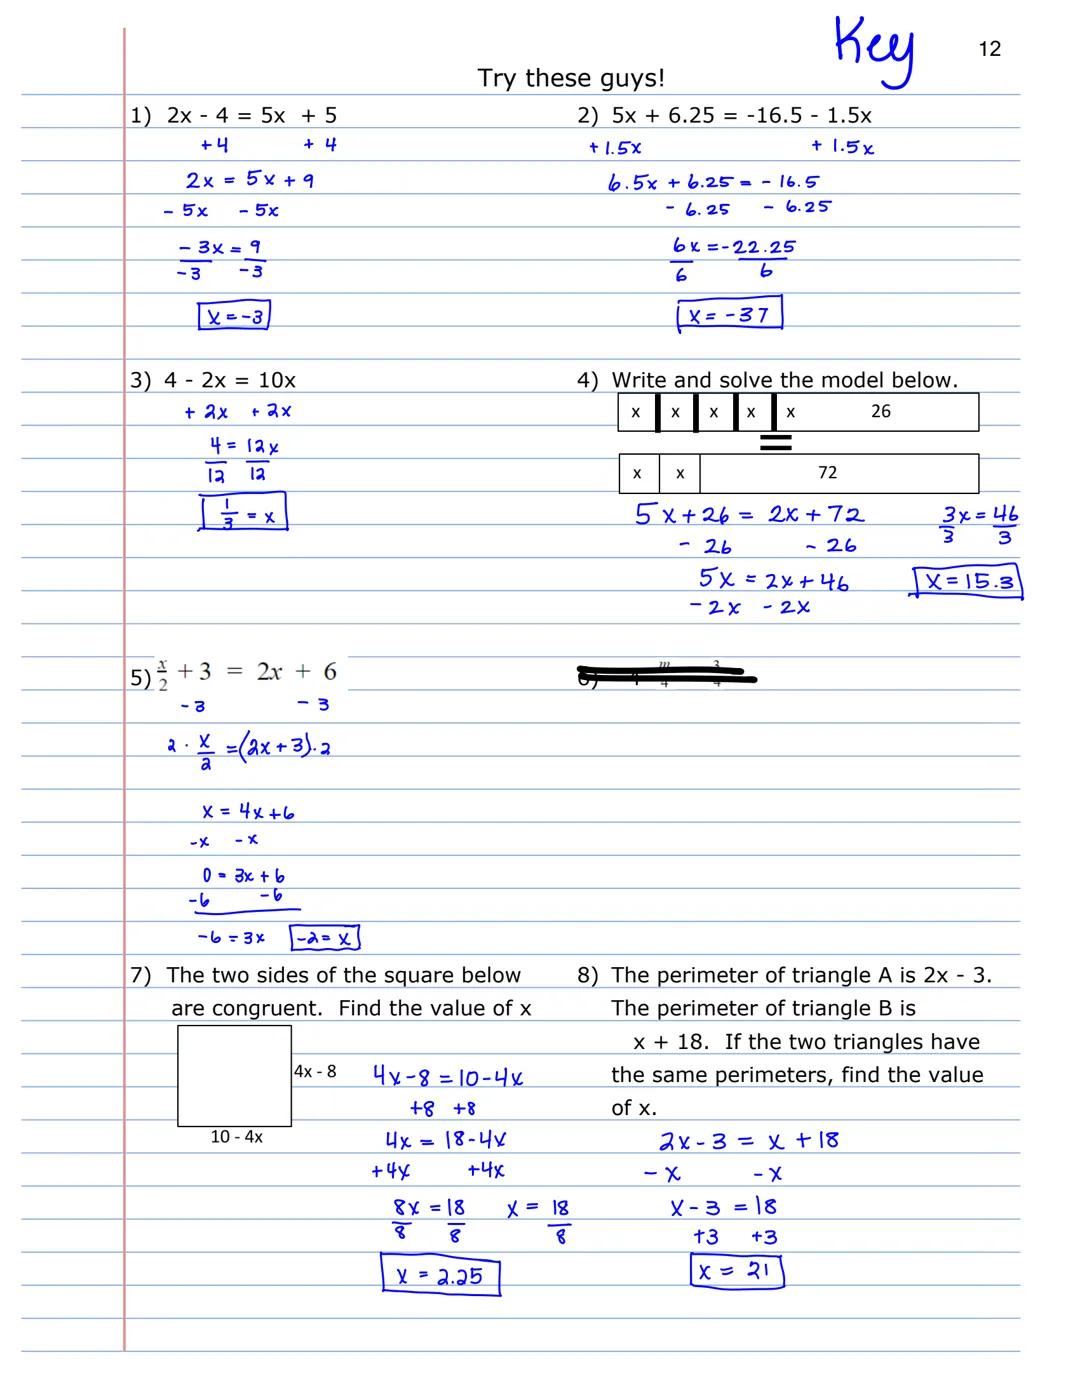 Key
12
Try these guys!
1) 2x - 4 = 5x + 5
+4 + 4
2x = 5x + 9
- 5x - 5x
- 3x = 9
-3 -3
x = -3
2) 5x + 6.25 = -16.5 - 1.5x
+ 1.5x + 1.5x
6.5x + 6.25 = - 16.5
- 6.25 - 6.25
6x = -22.25
6 6
x = -37
3) 4 - 2x = 10x
+ 2x + 2x
4 = 12x
12 12
1/3 = x
4) Write and solve the model below.
x x x x x 26
=
x x 72
5x + 26 = 2x + 72
- 26 - 26
5x = 2x + 46
- 2x - 2x
3x = 46
3 3
x = 15.3
5) x/2 + 3 = 2x + 6
- 3 - 3
2 · x/2 = (2x + 3) · 2
x = 4x + 6
-x - x
0 = 3x + 6
-6 -6
-6 = 3x -2 = x
7) The two sides of the square below
are congruent. Find the value of x
4x - 8
10 - 4x
4x - 8 = 10 - 4x
+8 +8
4x = 18 - 4x
+4x +4x
8x = 18 x = 18
8 8 8
x = 2.25
8) The perimeter of triangle A is 2x - 3.
The perimeter of triangle B is
x + 18. If the two triangles have
the same perimeters, find the value
of x.
2x - 3 = x + 18
- x - x
x - 3 = 18
+3 +3
x = 21